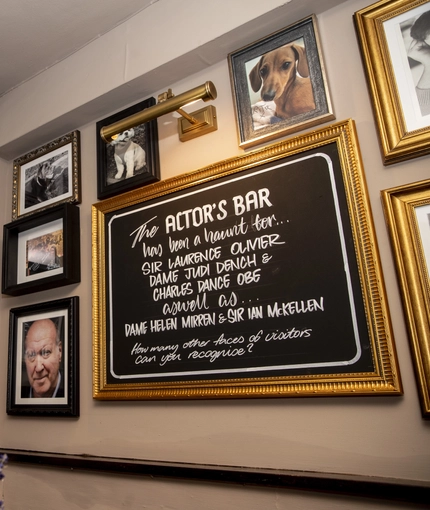 The ACTOR'S BAR
has been a haunt for...
SIR LAURENCE OLIVIER
DAME JUDI DENCH &
CHARLES DANCE OBE
aswell as...
DAME HELEN MIRREN & SIR IAN McKELLEN
How many other faces of visitors
can you recognise?